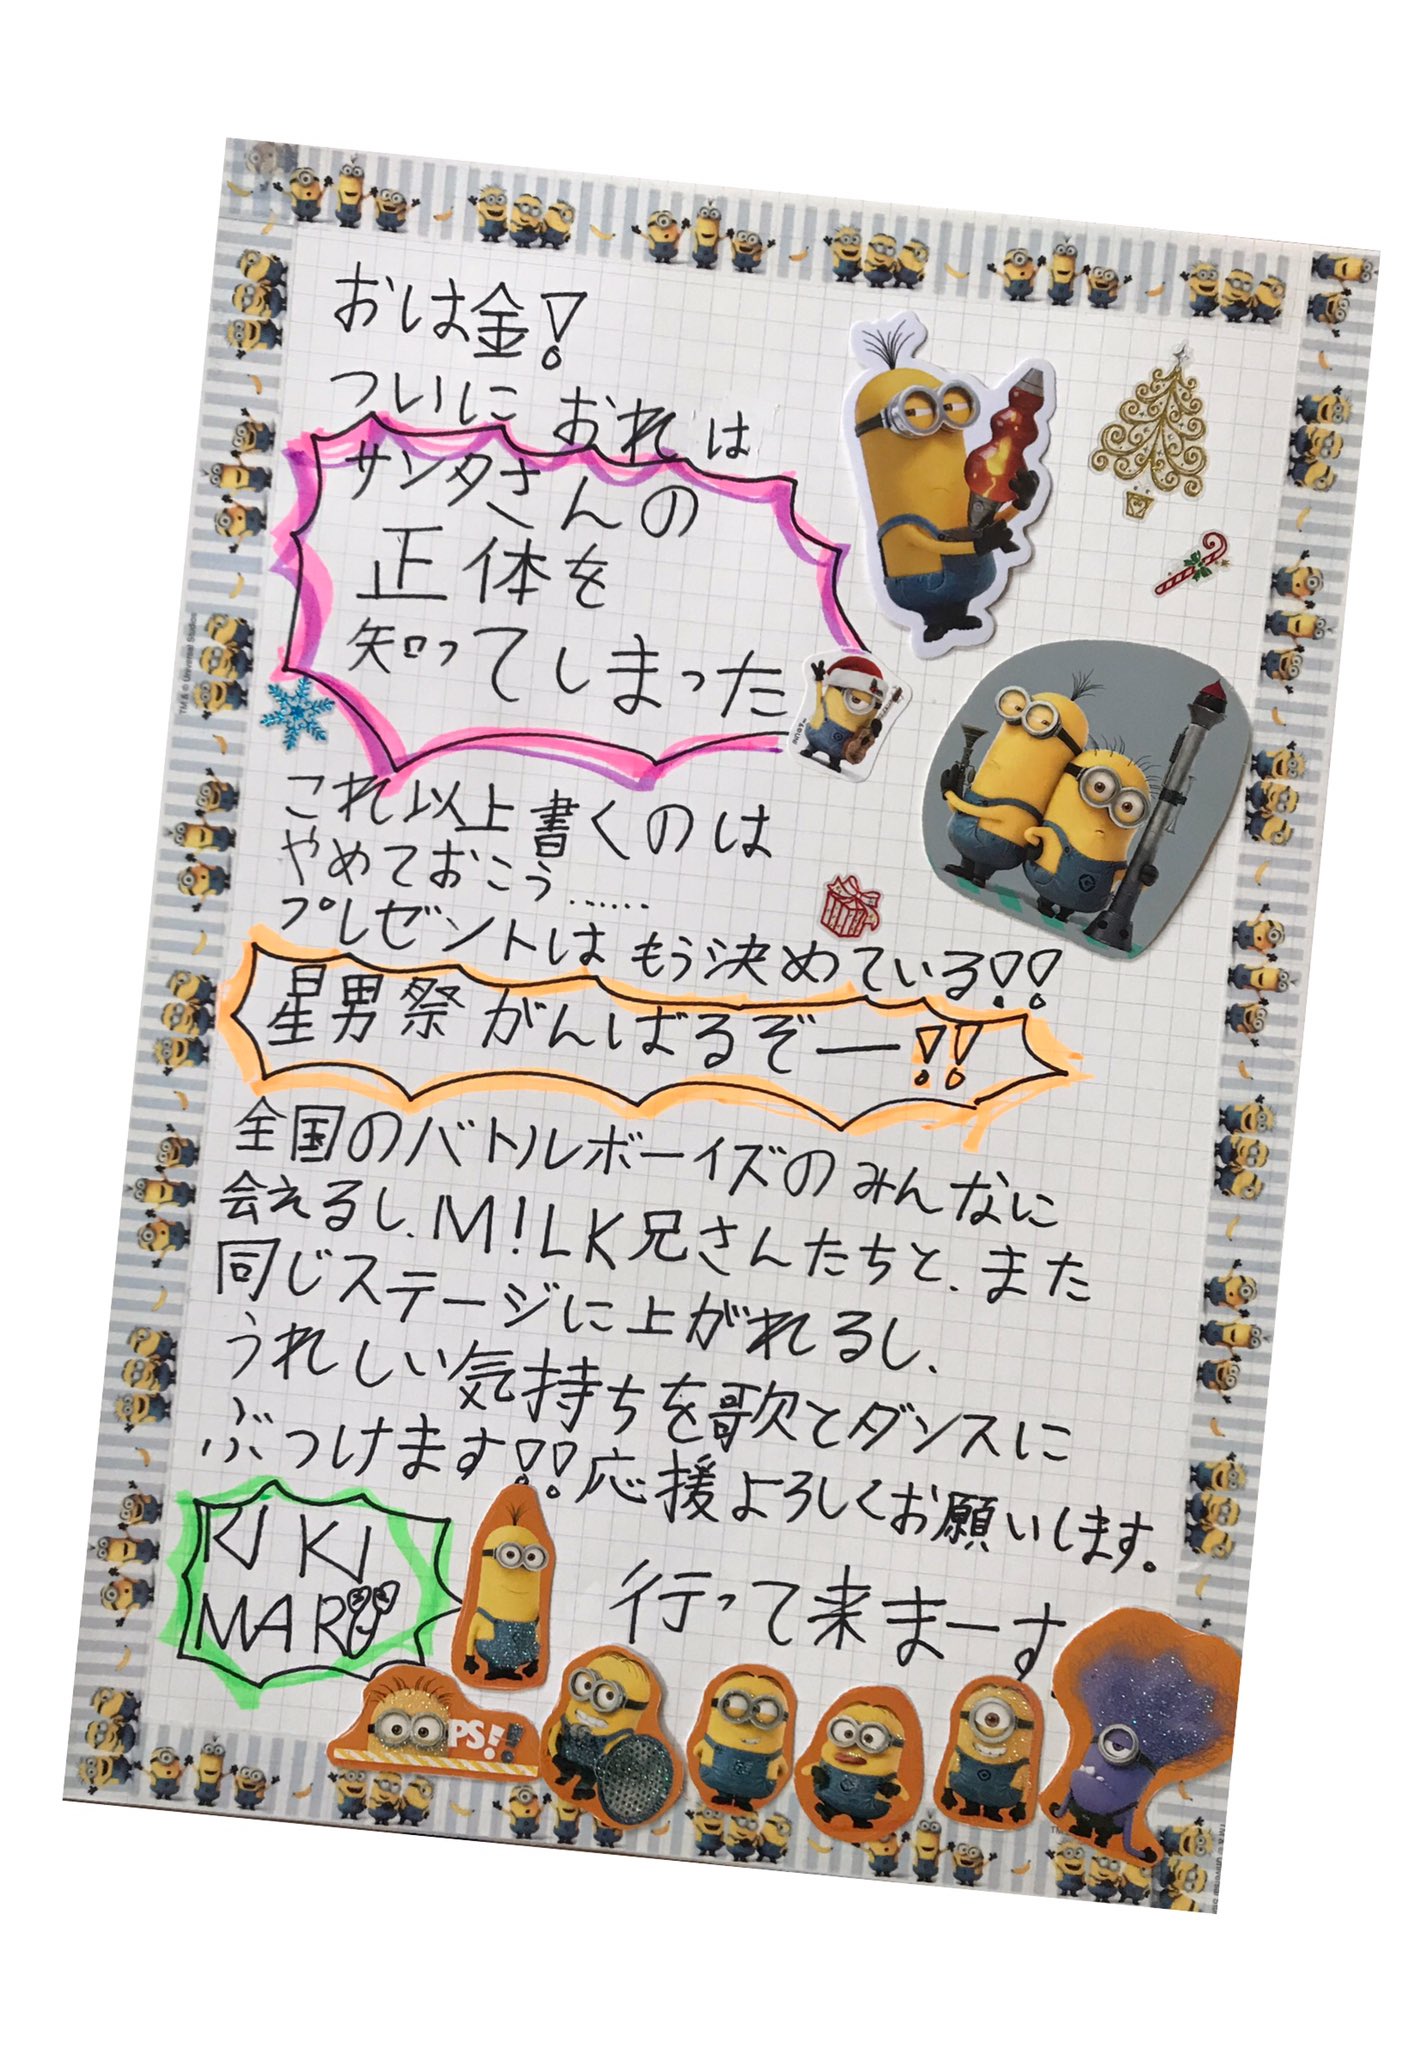 おは金!
ついに おれは
サンタさんの
正体を
知ってしまった
これ以上書くのは
やめておこう……
プレゼントは もう決めている!!
星男祭がんばるぞー!!
全国のバトルボーイズのみんなに
会えるし、M!LK兄さんたちと、また
同じステージに上がれるし、
うれしい気持ちを歌とダンスに
ぶつけます!!応援よろしくお願いします。
RIKI
MARU
行って来まーす
PS!!